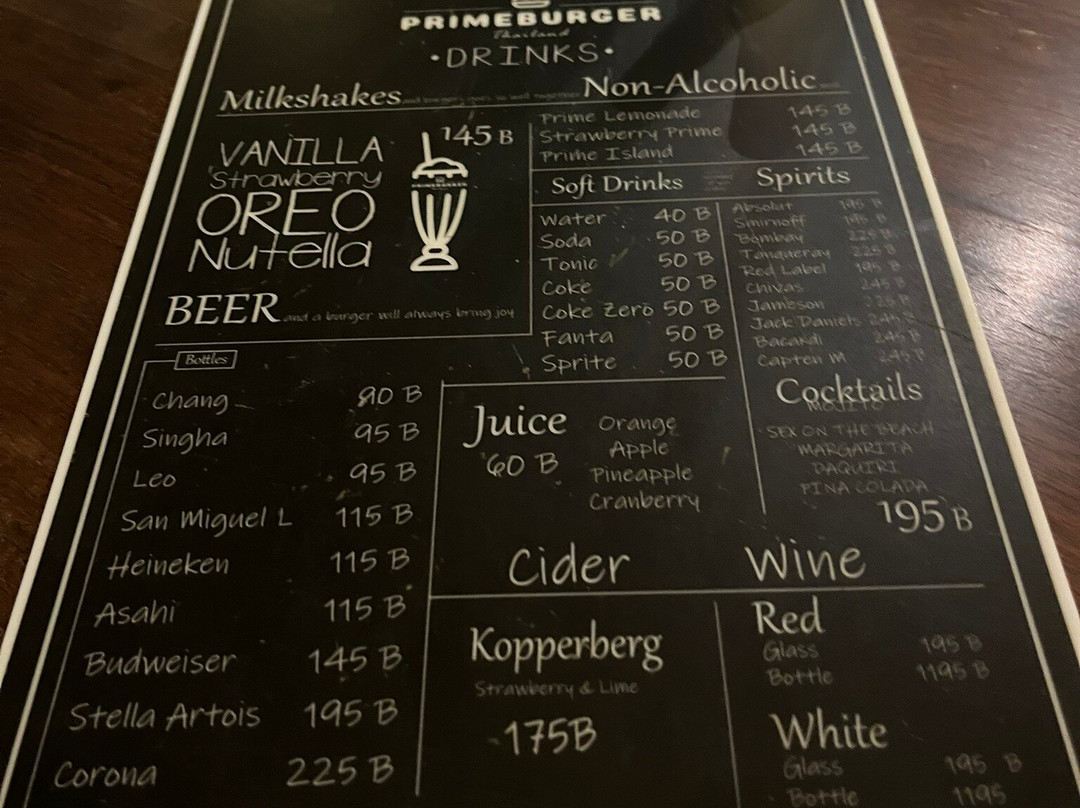 PRIMEBURGER
Thailand
•DRINKS•
Milkshakes
145 B
VANILLA
Strawberry
OREO
Nutella
PRIMEBURGER
BEER and a burger will always bring joy
Bottles
Chang 90 B
Singha 95 B
Leo 95 B
San Miguel L 115 B
Heineken 115 B
Asahi 115 B
Budweiser 145 B
Stella Artois 195 B
Corona 225 B
Non-Alcoholic
Prime Lemonade 145 B
Strawberry Prime 145 B
Prime Island 145 B
Soft Drinks
Water 40 B
Soda 50 B
Tonic 50 B
Coke 50 B
Coke Zero 50 B
Fanta 50 B
Sprite 50 B
Spirits
Absolut 195 B
Smirnoff 195 B
Bombay 225 B
Tanqueray 225 B
Red Label 195 B
Chivas 245 B
Jameson 225 B
Jack Daniels 245 B
Bacardi 245 B
Capten M 245 B
Juice
60 B
Orange
Apple
Pineapple
Cranberry
Cocktails
MOJITO
SEX ON THE BEACH
MARGARITA
DAQUIRI
PINA COLADA
195 B
Cider
Kopperberg
Strawberry & Lime
175B
Wine
Red
Glass 195 B
Bottle 1195 B
White
Glass 195 B
Bottle 1195